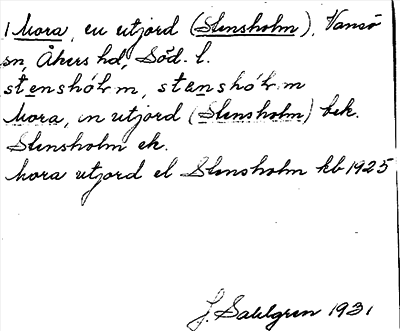 1 Mora, en utjord (Stensholm), Vansö
sn, Åkers hd, Söd. l.
stenshól.m, stanshól.m
Mora, en utjord (Stensholm) bek.
Stensholm ek.
Mora utjord el Stensholm kb 1925
J. Sahlgren 1931